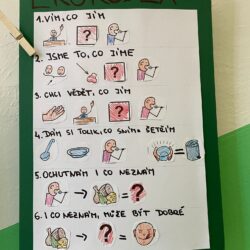 1. VÍM, CO JÍM
2. JSME TO, CO JÍME
3. CHCI VĚDĚT, CO JÍM
4. DÁM SI TOLIK, CO SNÍM = ŠETŘÍM
5. OCHUTNÁM I CO NEZNÁM
6. I CO NEZNÁM, MŮŽE BÝT DOBRÉ